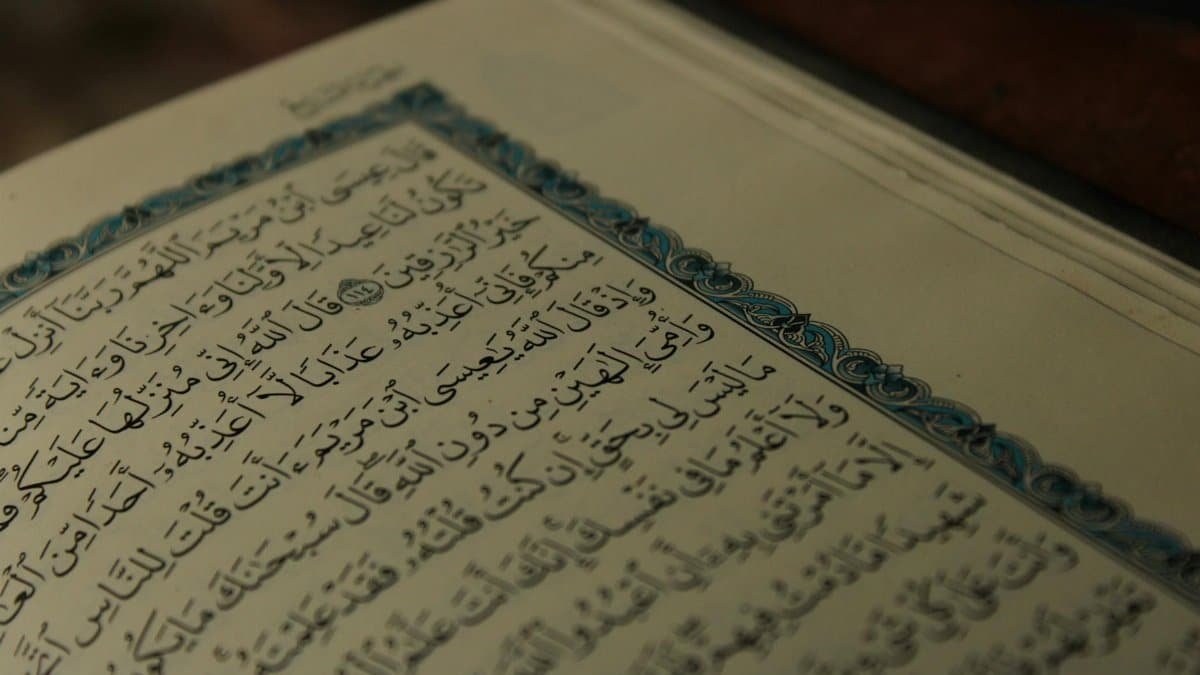 قَالَ عِيسَى ٱبْنُ مَرْيَمَ ٱللَّهُمَّ رَبَّنَآ أَنزِلْ
تَكُونُ لَنَا عِيدًا لِّأَوَّلِنَا وَءَاخِرِنَا وَءَايَةً مِّن
خَيْرُ ٱلرَّٰزِقِينَ ١١٤ قَالَ ٱللَّهُ إِنِّى مُنَزِّلُهَا عَلَيْكُمْ
مِنكُمْ فَإِنِّىٓ أُعَذِّبُهُۥ عَذَابًا لَّآ أُعَذِّبُهُۥٓ أَحَدًا مِّنَ
وَإِذْ قَالَ ٱللَّهُ يَٰعِيسَى ٱبْنَ مَرْيَمَ ءَأَنتَ قُلْتَ لِلنَّاسِ
وَأُمِّىَ إِلَٰهَيْنِ مِن دُونِ ٱللَّهِ قَالَ سُبْحَٰنَكَ مَا يَكُونُ
مَا لَيْسَ لِى بِحَقٍّ إِن كُنتُ قُلْتُهُۥ فَقَدْ عَلِمْتَهُۥ
وَلَآ أَعْلَمُ مَا فِى نَفْسِكَ إِنَّكَ أَنتَ عَلَّٰمُ
إِلَّا مَآ أَمَرْتَنِى بِهِۦٓ أَنِ ٱعْبُدُوا۟ ٱللَّهَ
شَهِيدًا مَّا دُمْتُ فِيهِمْ
وَأَنتَ عَلَىٰ كُلِّ شَىْءٍ